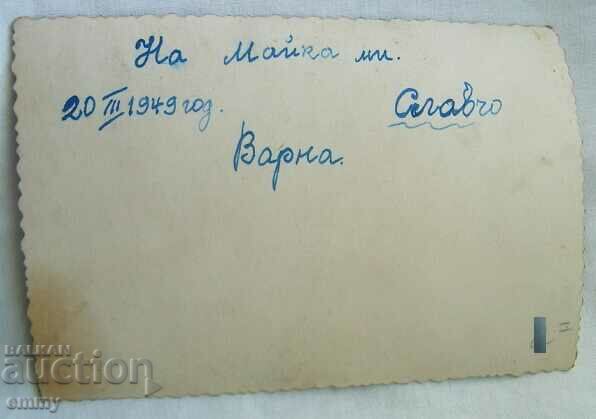 На Майка ми.
20 III 1949 год. Славчо
Варна.
II
BALKAN
auction
emmy